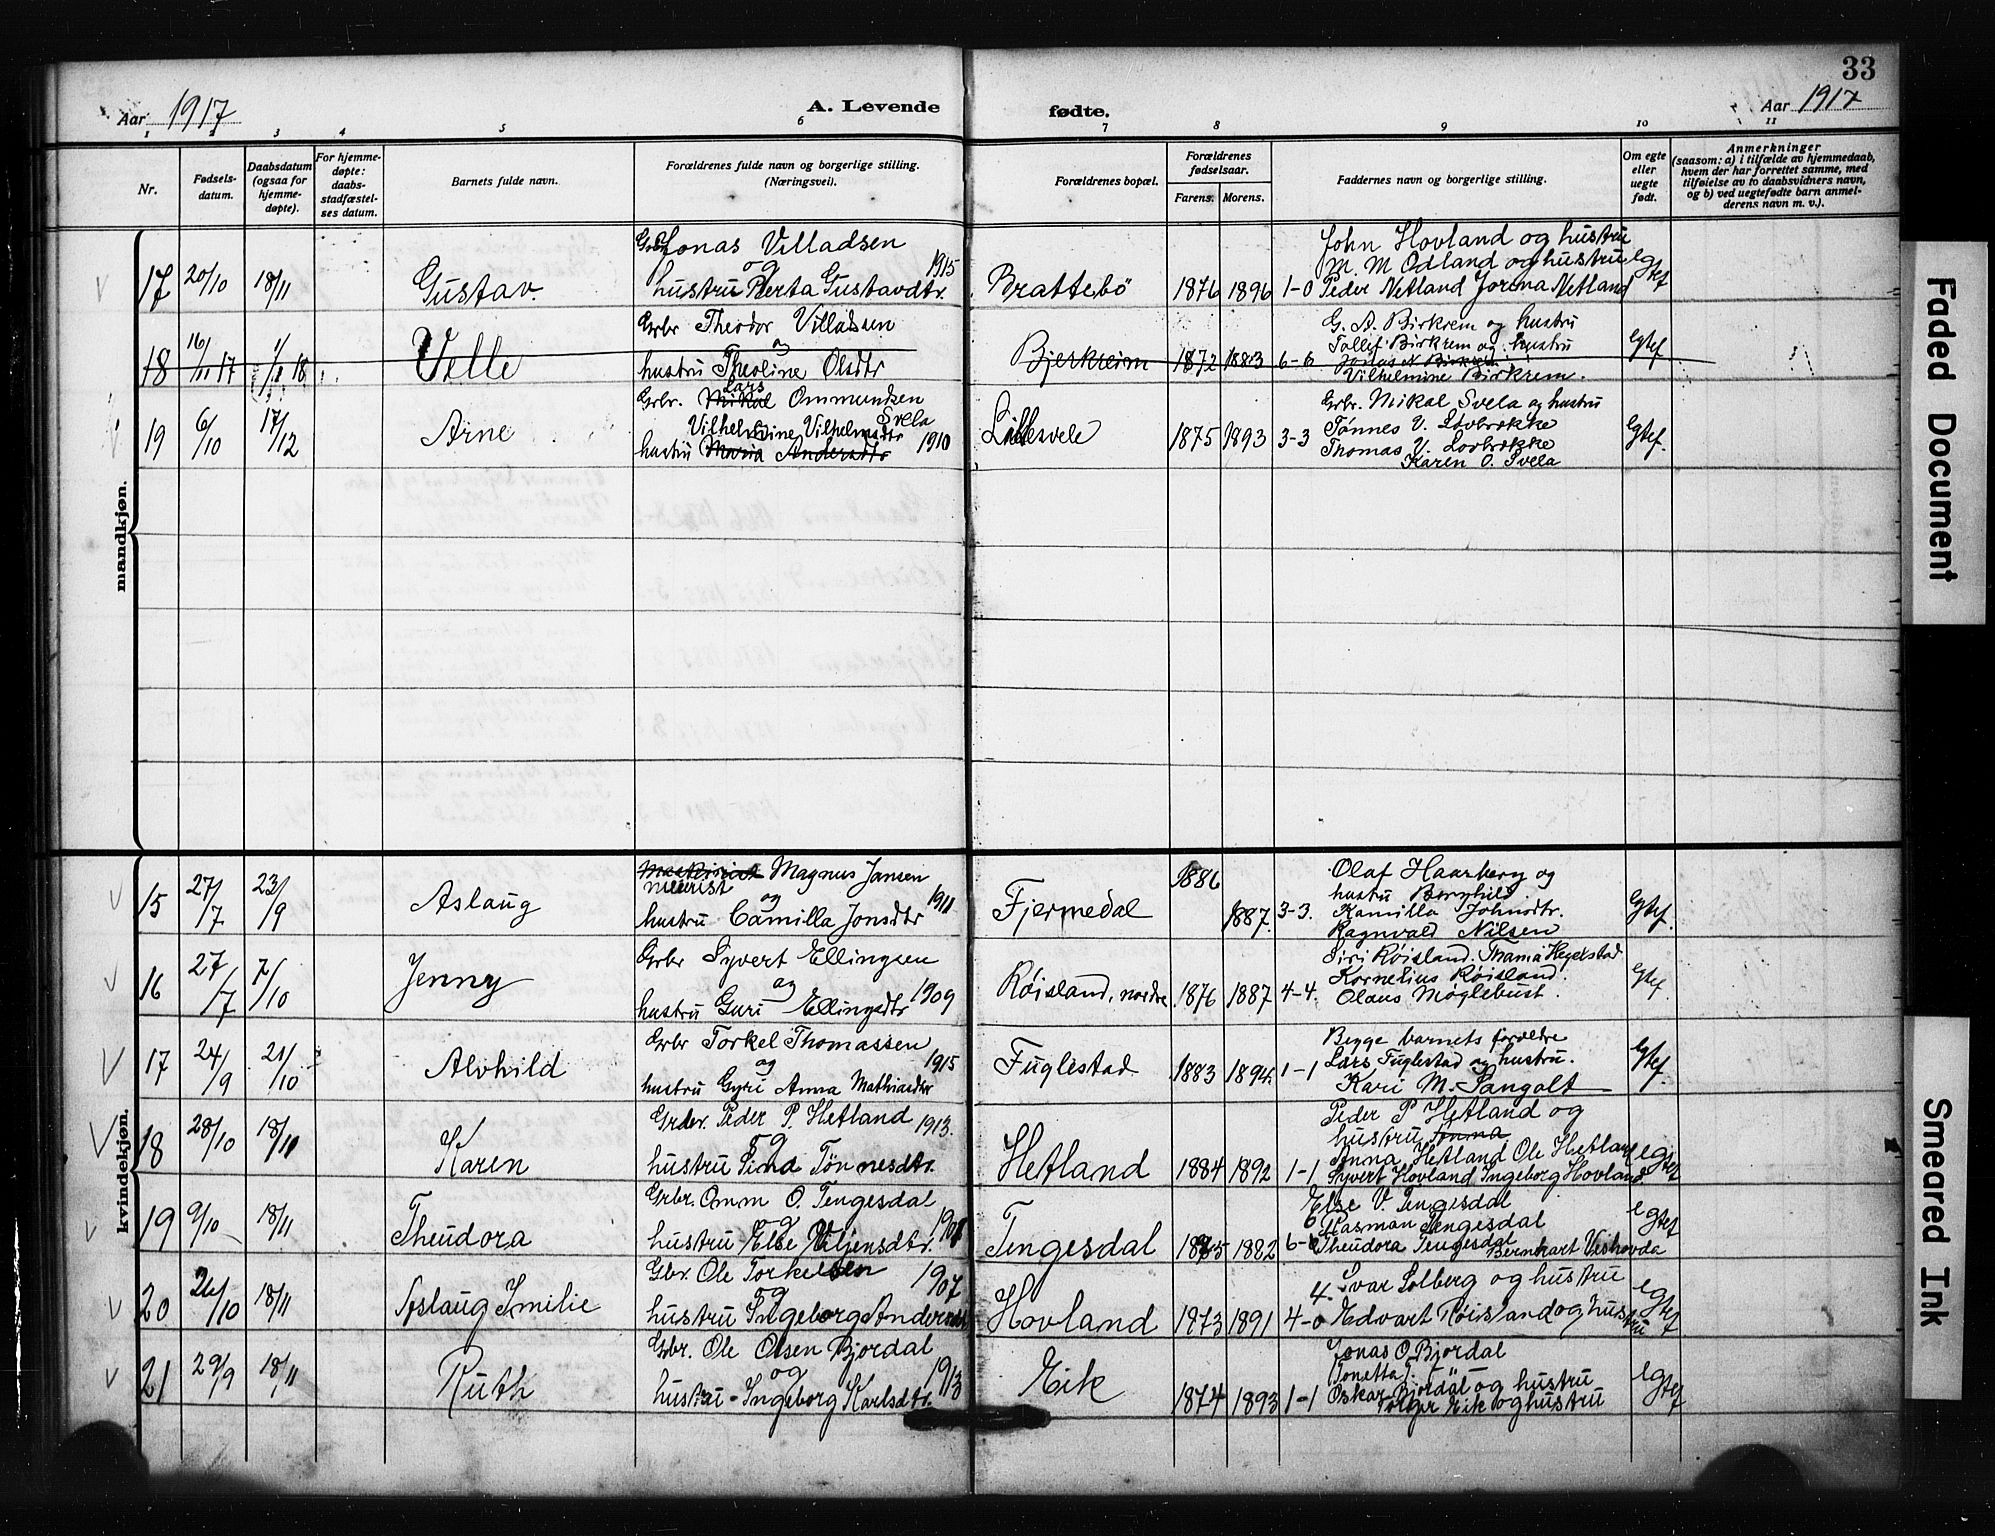 33
Aar 1917 A. Levende fødte. Aar 1917
1 2 3 4 5 6 7 8 9 10 11
Nr.
Fødsels-
datum.
Daabsdatum
(ogsaa for
hjemme-
døpte).
For hjemme-
døpte:
daabs-
stadfæstel-
ses datum.
Barnets fulde navn.
Forældrenes fulde navn og borgerlige stilling.
(Næringsvei).
Forældrenes bopæl.
Forældrenes
fødselsaar.
Farens. Morens.
Faddernes navn og borgerlige stilling.
Om egte
eller
uegte
født.
Anmerkninger
(saasom: a) i tilfælde av hjemmedaab,
hvem der har forrettet samme, med
tilføielse av to daabsvidners navn,
og b) ved uegtefødte barn anmel-
derens navn m. v.).
mandkjøn.
17 20/10 18/11 Gustav.
Jonas Villadsen
og 1915
hustru Berta Gustavdtr.
Brattebö 1876 1896 1-0
John Hovland og hustru
M. M Odland og hustru
Peder Netland Jorina Netland
egtef
18 16/11 17 1/1 18 Velle
Grbr Theodor Villadsen
og
hustru Theoline Olsdtr
Bjerkreim 1872 1883 6-6
G. A. Birkrem og hustru
Tollef Birkrem og hustru
Jonas N Birkrem
Vilhelmine Birkrem.
Egtef
19 6/10 17/12 Arne
Lars
Grbr. Mikal Ommundsen
Svela
Vilhelmine Vilhelmsdtr
hustru Maria Andersdtr 1910
Lillesvele 1875 1893 3-3
Grbr. Mikal Svela og hustru
Tønnes V. Løvbrekke
Thomas V. Lovbrekke
Karen O. Svela
Egtef.
kvindekjøn.
15 27/7 23/9 Aslaug
Magnus Jansen
meierist
og 1911
hustru Camilla Jonsdtr
Fjermedal 1886 1887. 3-3.
Olaf Haarberg og
hustru Borghild
Kamilla Johnsdtr.
Ragnvald Nilsen
Egtef.
16 27/7 7/10 Jenny
Grbr Syvert Ellingsen
og
hustru Guri Ellingsdtr 1909
Røisland, nordre. 1876 1887 4-4.
Siri Røisland. Thania Hegelstad
Kornelius Røisland.
Olaus Møglebust.
Egtef.
17 24/9 21/10 Alvhild
Grbr Torkel Thomassen
og 1915
hustru Gyri Anna Mathiasdtr
Fuglestad 1883 1894. 1-1
Begge barnets forældre
Lars Fuglestad og hustru.
Kari M. Sangolt
Egtef.
18 28/10 18/11 Karen
Grbr. Peder P. Hetland
og 1913.
hustru Sina Tönnesdtr.
Hetland 1884 1892 1-1
Peder P Hetland og
hustru Anna
Anna Hetland Ole Hetland
Syvert Hovland Ingeborg Hovland
egtef
19 9/10 18/11 Theudora
Grbr. Omm O. Tengesdal
og
hustru Else Viljensdtr.
Tengesdal 1882 6-6
Else V. Tengesdal
Rasman Tengesdal
Theudora Tengesdal
Bernhart Veshovda
egtef
20 26/10 18/11 Aslaug Emilie
Gbr. Ole Torkelsen 1907
og
hustru Ingeborg Andersdtr
Hovland 1873 1891 4-0
4. Ivar Solberg og hustru
Edvart Röisland og hustru
egtef
21 29/9 18/11 Ruth
Grbr. Ole Olsen Bjordal
og 1913
hustru - Ingeborg Karlsdtr.
Eik 1874 1893 1-1
Jonas O Bjordal
Tonetta J. "
Oskar Bjordal og hustru
Torger Eik og hustru
egtef
Faded Document
Smeared Ink